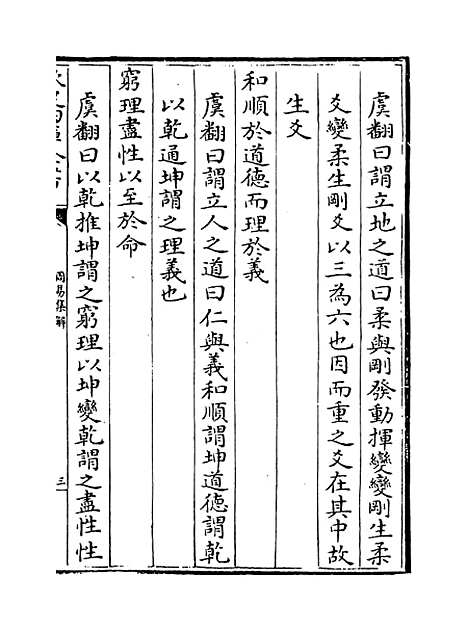 虞翻曰謂立地之道曰柔與剛發動揮變變剛生柔
爻變柔生剛爻以三為六也因而重之爻在其中故
生爻
和順於道德而理於義
虞翻曰謂立人之道曰仁與義和順謂坤道德謂乾
以乾通坤謂之理義也
窮理盡性以至於命
虞翻曰以乾推坤謂之窮理以坤變乾謂之盡性性
周易集解
三